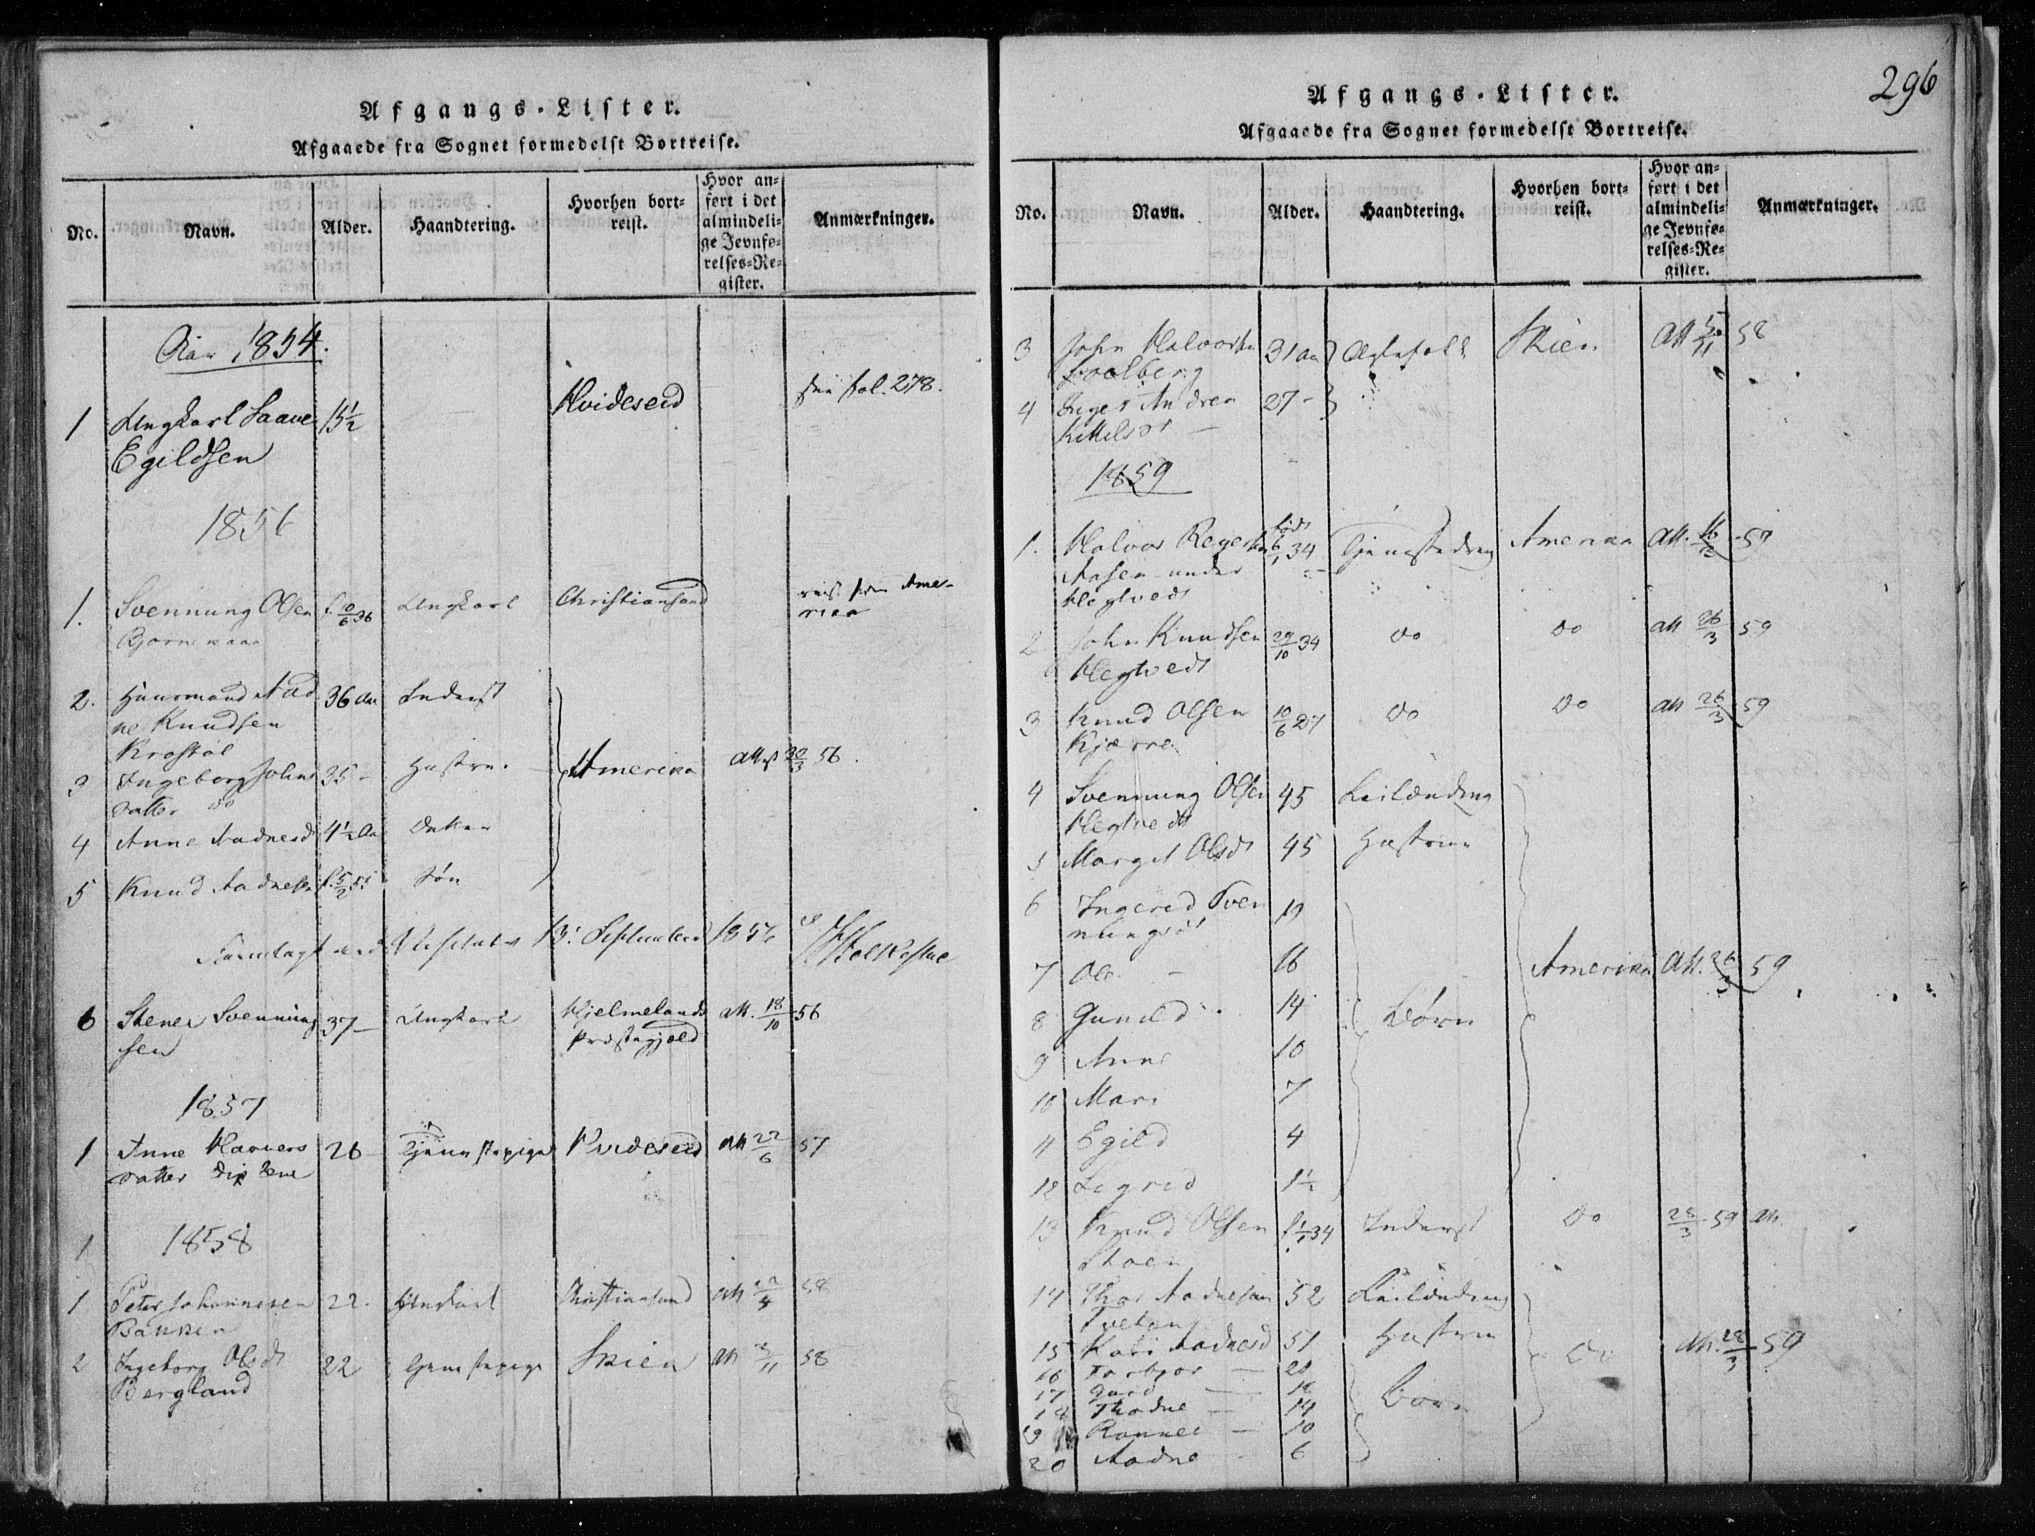 Afgangs-Lister.
Afgaaede fra Sognet formedelst Bortreise.
No. Navn. Alder. Haandtering. Hvorhen bortreist. Hvor anført i det almindelige Jevnførelses-Register. Anmærkninger.
Aar 1854.
1 Ungkarl Saave 15½ Hvideseid see fol. 278.
Egildsen
1856
1. Svennung Olsen f. 10/6 36 Ungkarl Christiansand reist fra Ame-
rica
2. Huusmand Aad 36 Aar Inderst
ne Knudsen
Krostøl
3 Ingeborg Johns 35 - Hustru Amerika Attest 30/3 56.
datter do
4 Anne Aadnesd 4½ Aar Datter
5 Knud Aadnesen f. 5/2 55 Søn
Fremlagt ved Visitats 13. September 1856
6 Stener Svenning 37 - Ungkarl Hjelmelands att. 18/10 56
sen Præstegjæld
1857
1 Anne Havers 26 - Tjenestepige Hvideseid att 22/6 57
datter
1858
1
1 Peter Johannesen 22. Christiansand att 58
Bakken
2 Ingeborg Olsdt 22 Tjenestepige Skien att 11 58
Bergland
296
Afgangs-Lister.
Afgaaede fra Sognet formedelst Bortreise.
No. Navn. Alder. Haandtering. Hvorhen bortreist. Hvor anført i det almindelige Jevnførelses-Register. Anmærkninger.
3 John Halvorsen 31 Aar Ægtefolk Skien Att 5/11 58
4 Inger Andrea 27 -
Kittilsdt
1859
1. Halvor 6/1 34 Tjenestedreng Amerika Att. 16/3 59
Aasen under
Hegtvedt
2 John Knudsen 29/10 34 do do att 26/3 59
Hegtvedt
3 Knud Olsen 10/6 27 do do att 26/3 59
4 Svennung Olsen 45 Leilænding
Hegtvedt
5 Margit Olsdt 45 Hustrue
6 Ingerid Sven 19
nungsdt
7 Ole - 16 Amerika Att. 26/3 59
8 Gunild 14 Børn
9 Anne 10
10 Mari 7
11 Egild 4
12 Sigrid 1½
13 Knud Olsen f 1/1 34 Inderst do 28/3 59 att.
14 Thor Aadnesen 52 Leilænding
Tveten
15 Kari Aadnesd 51 Hustru do att. 28/3 59
16 Torbjør -
17 -
18 Thadne - 14 Børn
19 - 10
20 Aadne 6